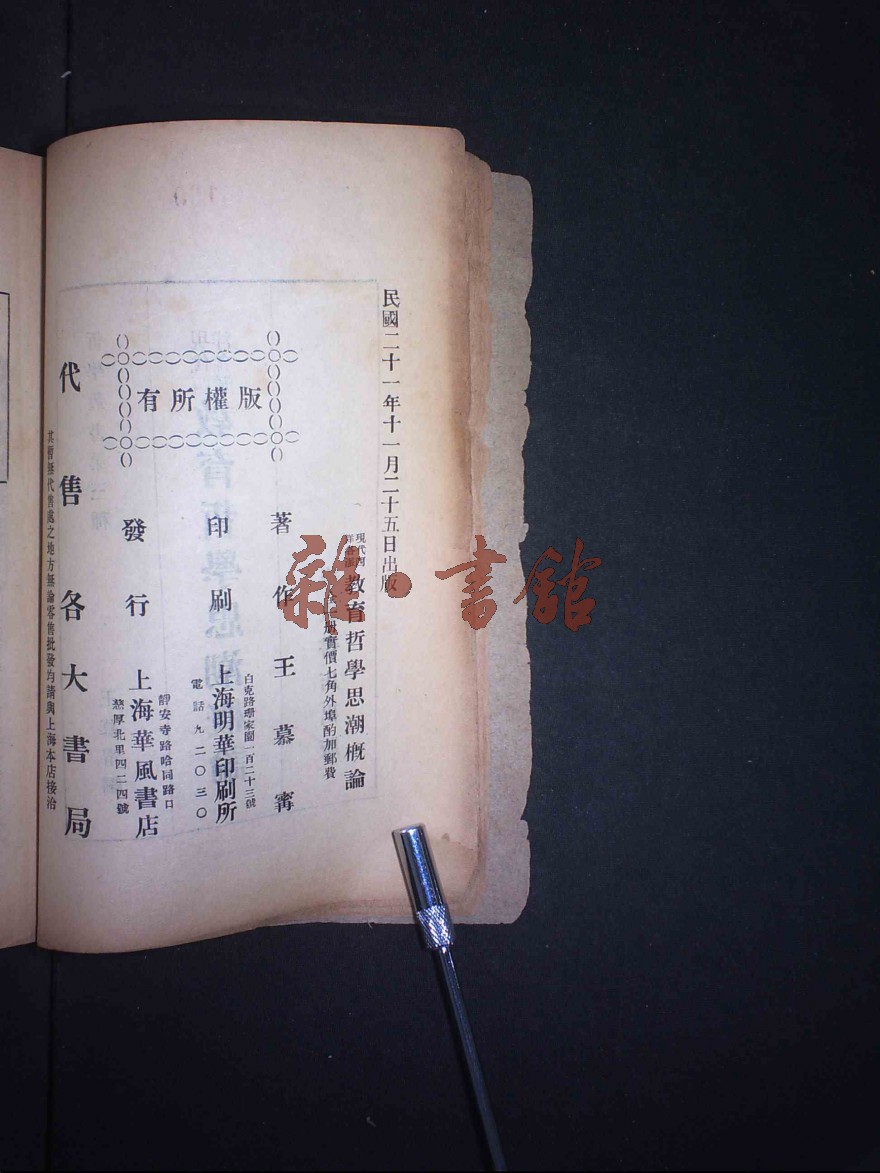 民國二十一年十一月二十五日出版
現代西
洋各派
教育哲學思潮概論
實價七角外埠酌加郵費
版權所有
著作 王慕寗
印刷 上海明華印刷所
白克路珊家園一百二十三號
電話九二〇三〇
發行 上海華風書店
靜安寺路哈同路口
慈厚北里四二四號
代售 各大書局
其暫無代售處之地方無論零售批發均請與上海本店接洽
雜·書館